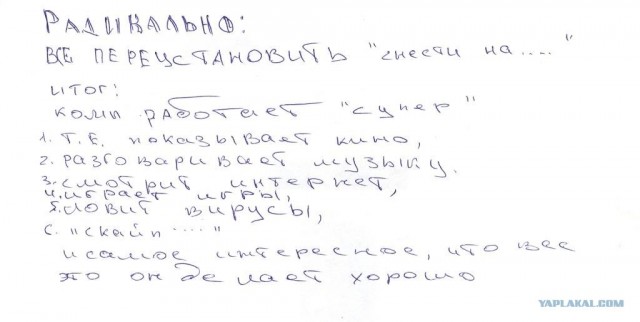 РАДИКАЛЬНО:
ВСЕ ПЕРЕУСТАНОВИТЬ "снести на...."
итог:
комп работает "супер"
1. Т.Е. показывает кино,
2. разговаривает музыку.
3. смотрит интернет,
4. играет игры,
5. ловит вирусы,
6. "скайп ...."
и самое интересное, что все
это он делает хорошо
YAPLAKAL.COM